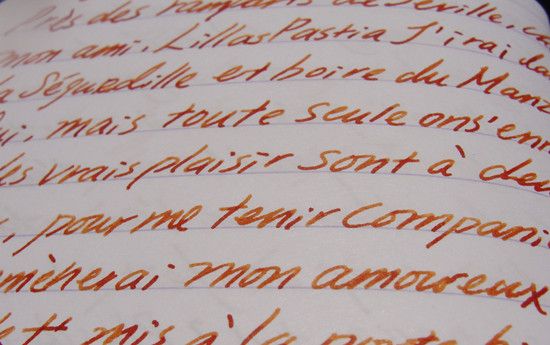 Près des remparts de Séville, c
mon ami, Lillas Pastia J'irai da
a Séguedille et boire du Manz
ui, mais toute seule on s'en
les vrais plaisir sont à deu
, pour me tenir Compani
mènerai mon amoureux
mis à la porte hi